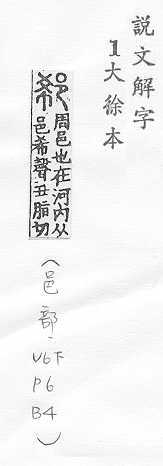 說文解字
1大徐本
郗 周邑也在河内从
邑希聲丑脂切
(邑部.
V6下
P6
B4)